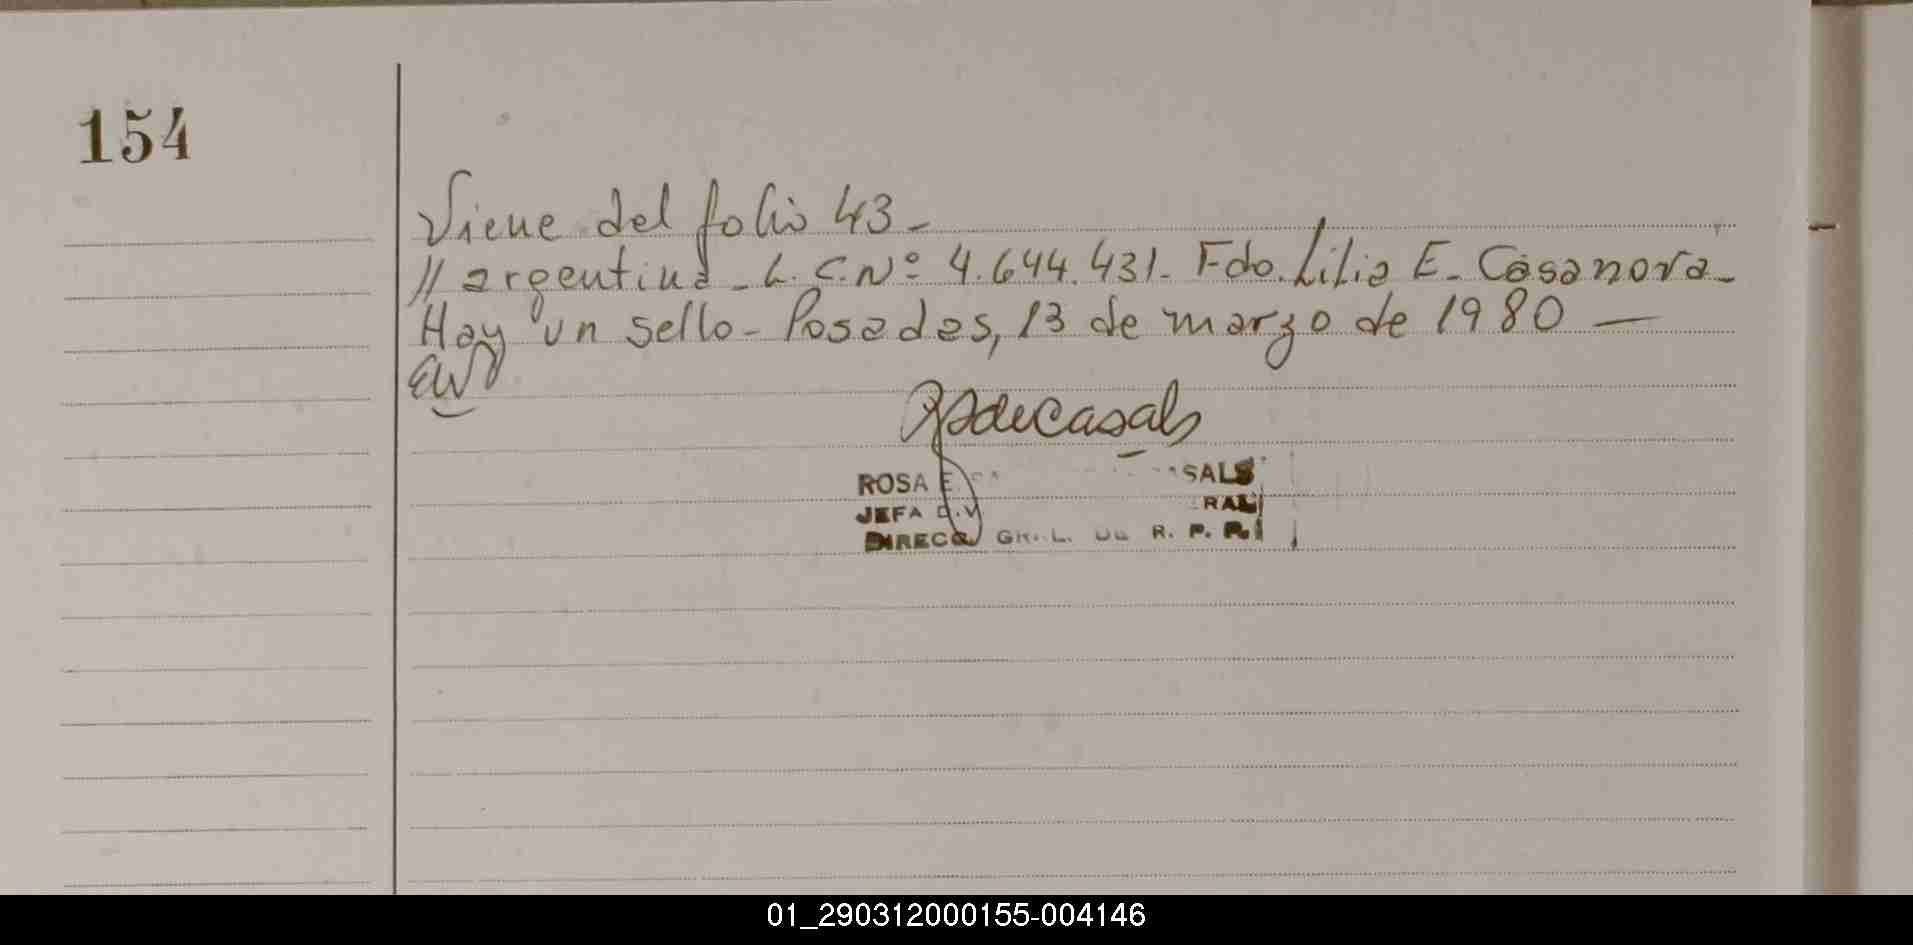 154
Viene del folio 43-
// argentina - L.C.Nº 4.644.431. Fdo. Lilia E. Casanova-
Hay un sello - Posadas, 13 de marzo de 1980 —
EW
RSdeCasals
ROSA E. SALS
JEFA D.V RAL
DIRECC GRAL. DE R. P. P.
01_290312000155-004146